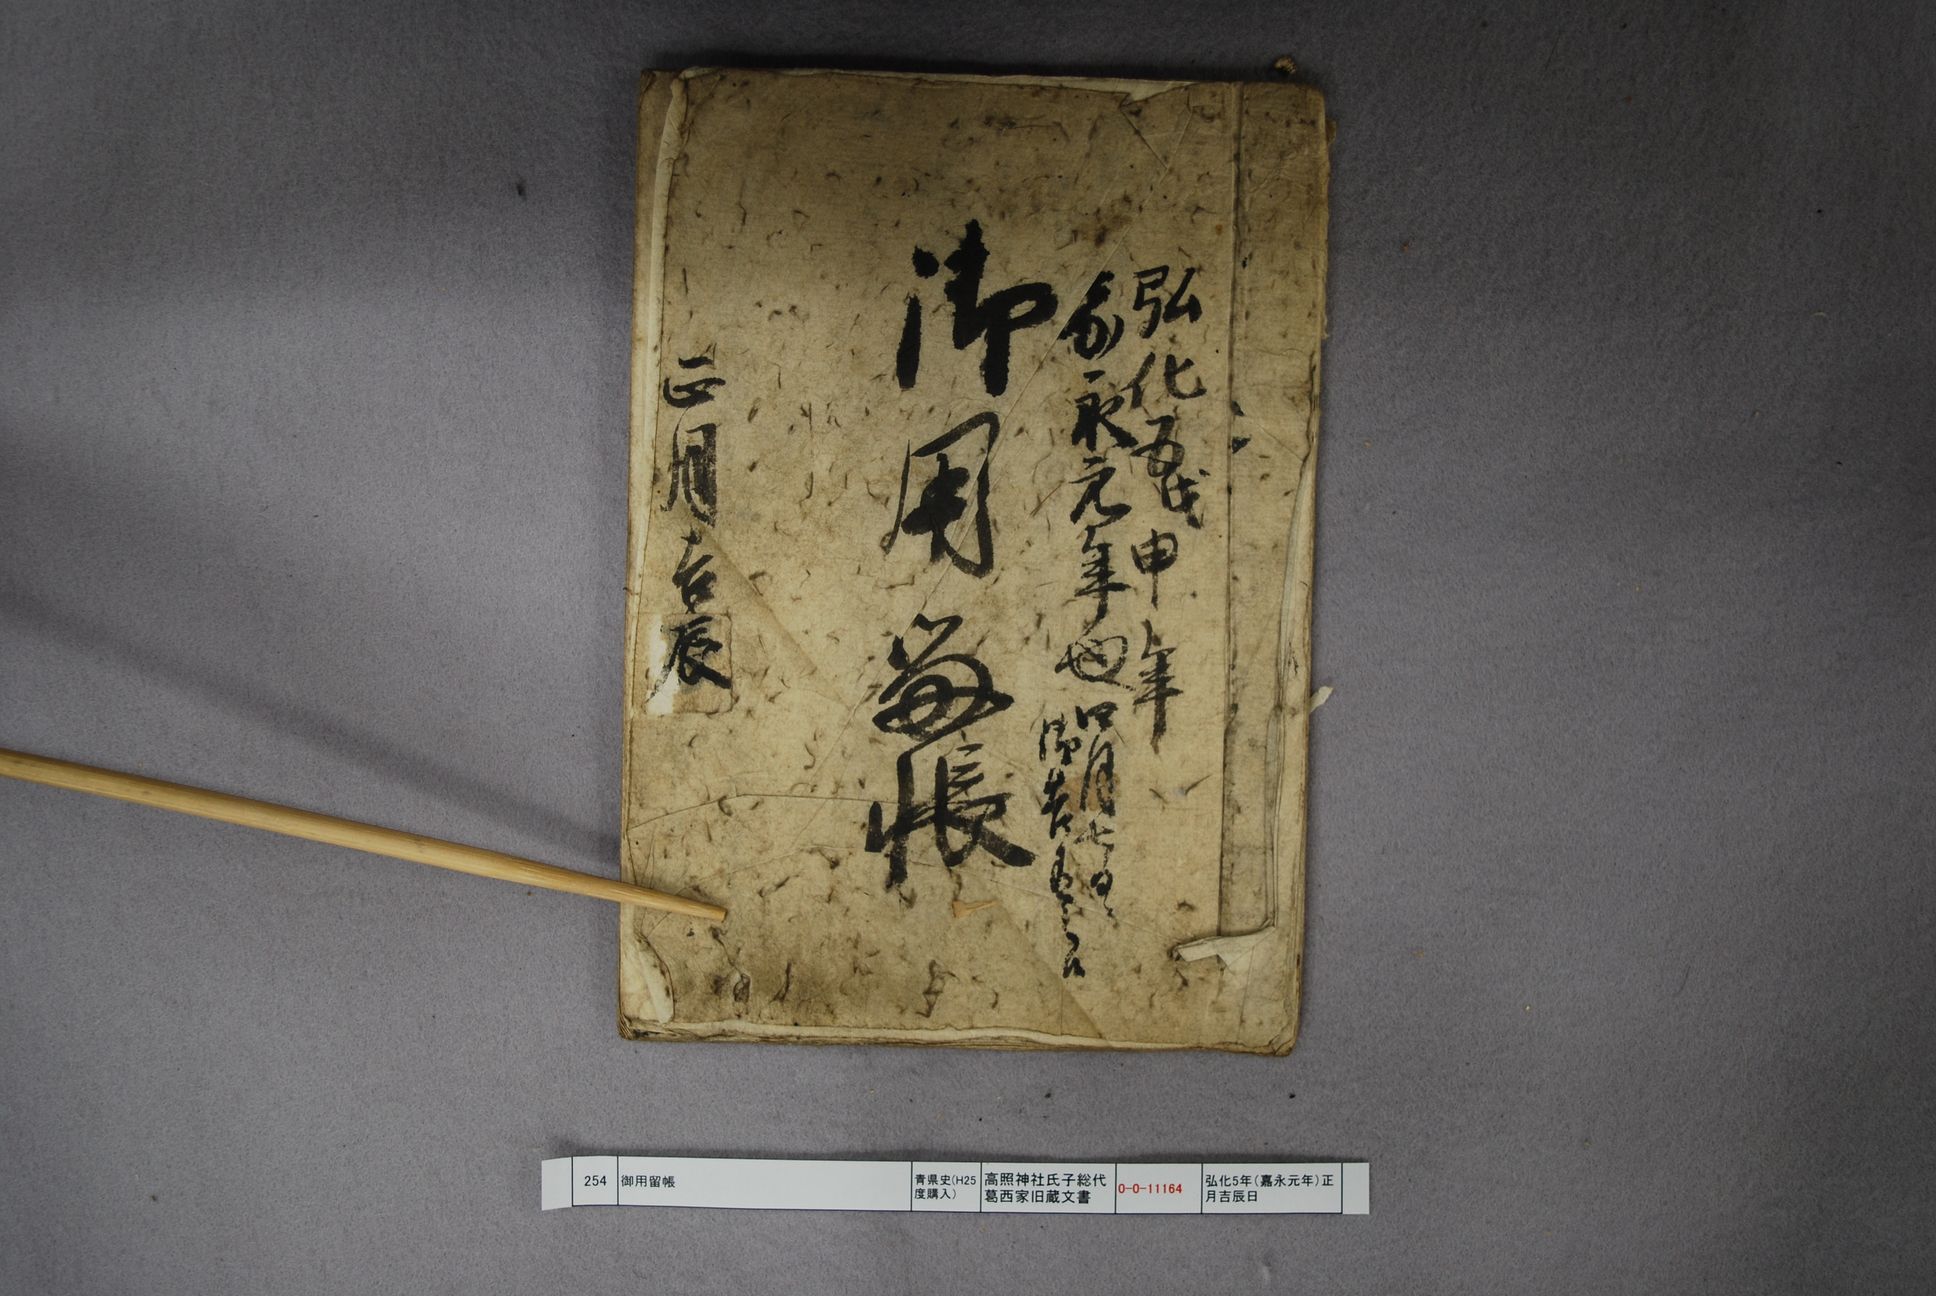 弘化五戊申年
嘉永元年也
四月七日
御告
御用留帳
正月吉辰
254
御用留帳
青県史(H25
度購入)
高照神社氏子総代
葛西家旧蔵文書
0-0-11164
弘化5年(嘉永元年)正
月吉辰日